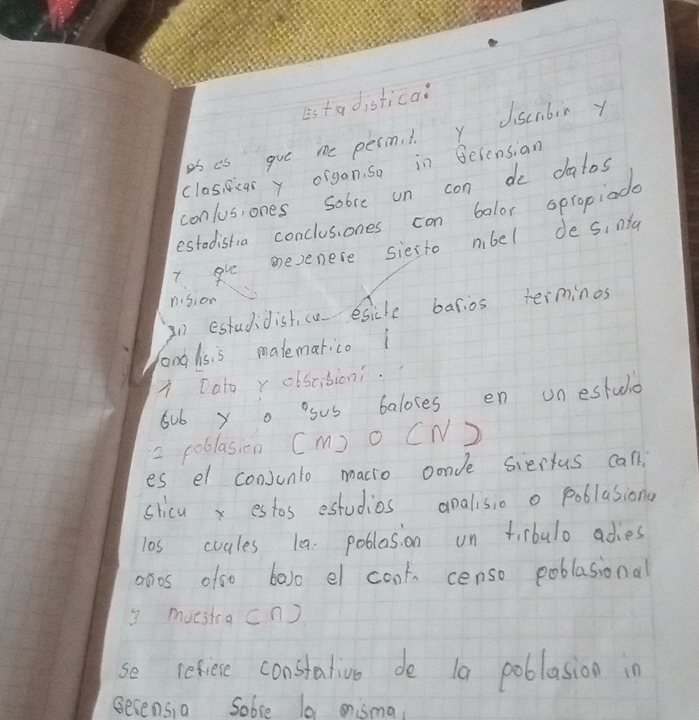 Estadistica:
es que me permit. y discribir y
clasificar y organisa in Gerensian
conlusiones sobre un con de datos
estadistia conclusiones con balor apropiado
y que mejenere sierto nibel de sinta
nision
in estadidistica esicte barios terminos
analisis matematico i
1 Dato y obscribioni.
Sub y o sus balores en un estudio
2 poblasion (M) o (N)
es el conjunto macro donde siertas cari
sticu x estos estudios analisio o poblasiona
los cuales la. poblasion un tirbulo adies
años otro bajo el cont. censo poblasional
3 muestra (n)
se refiere constativo de la poblasion in
Gerensia sobre la misma,